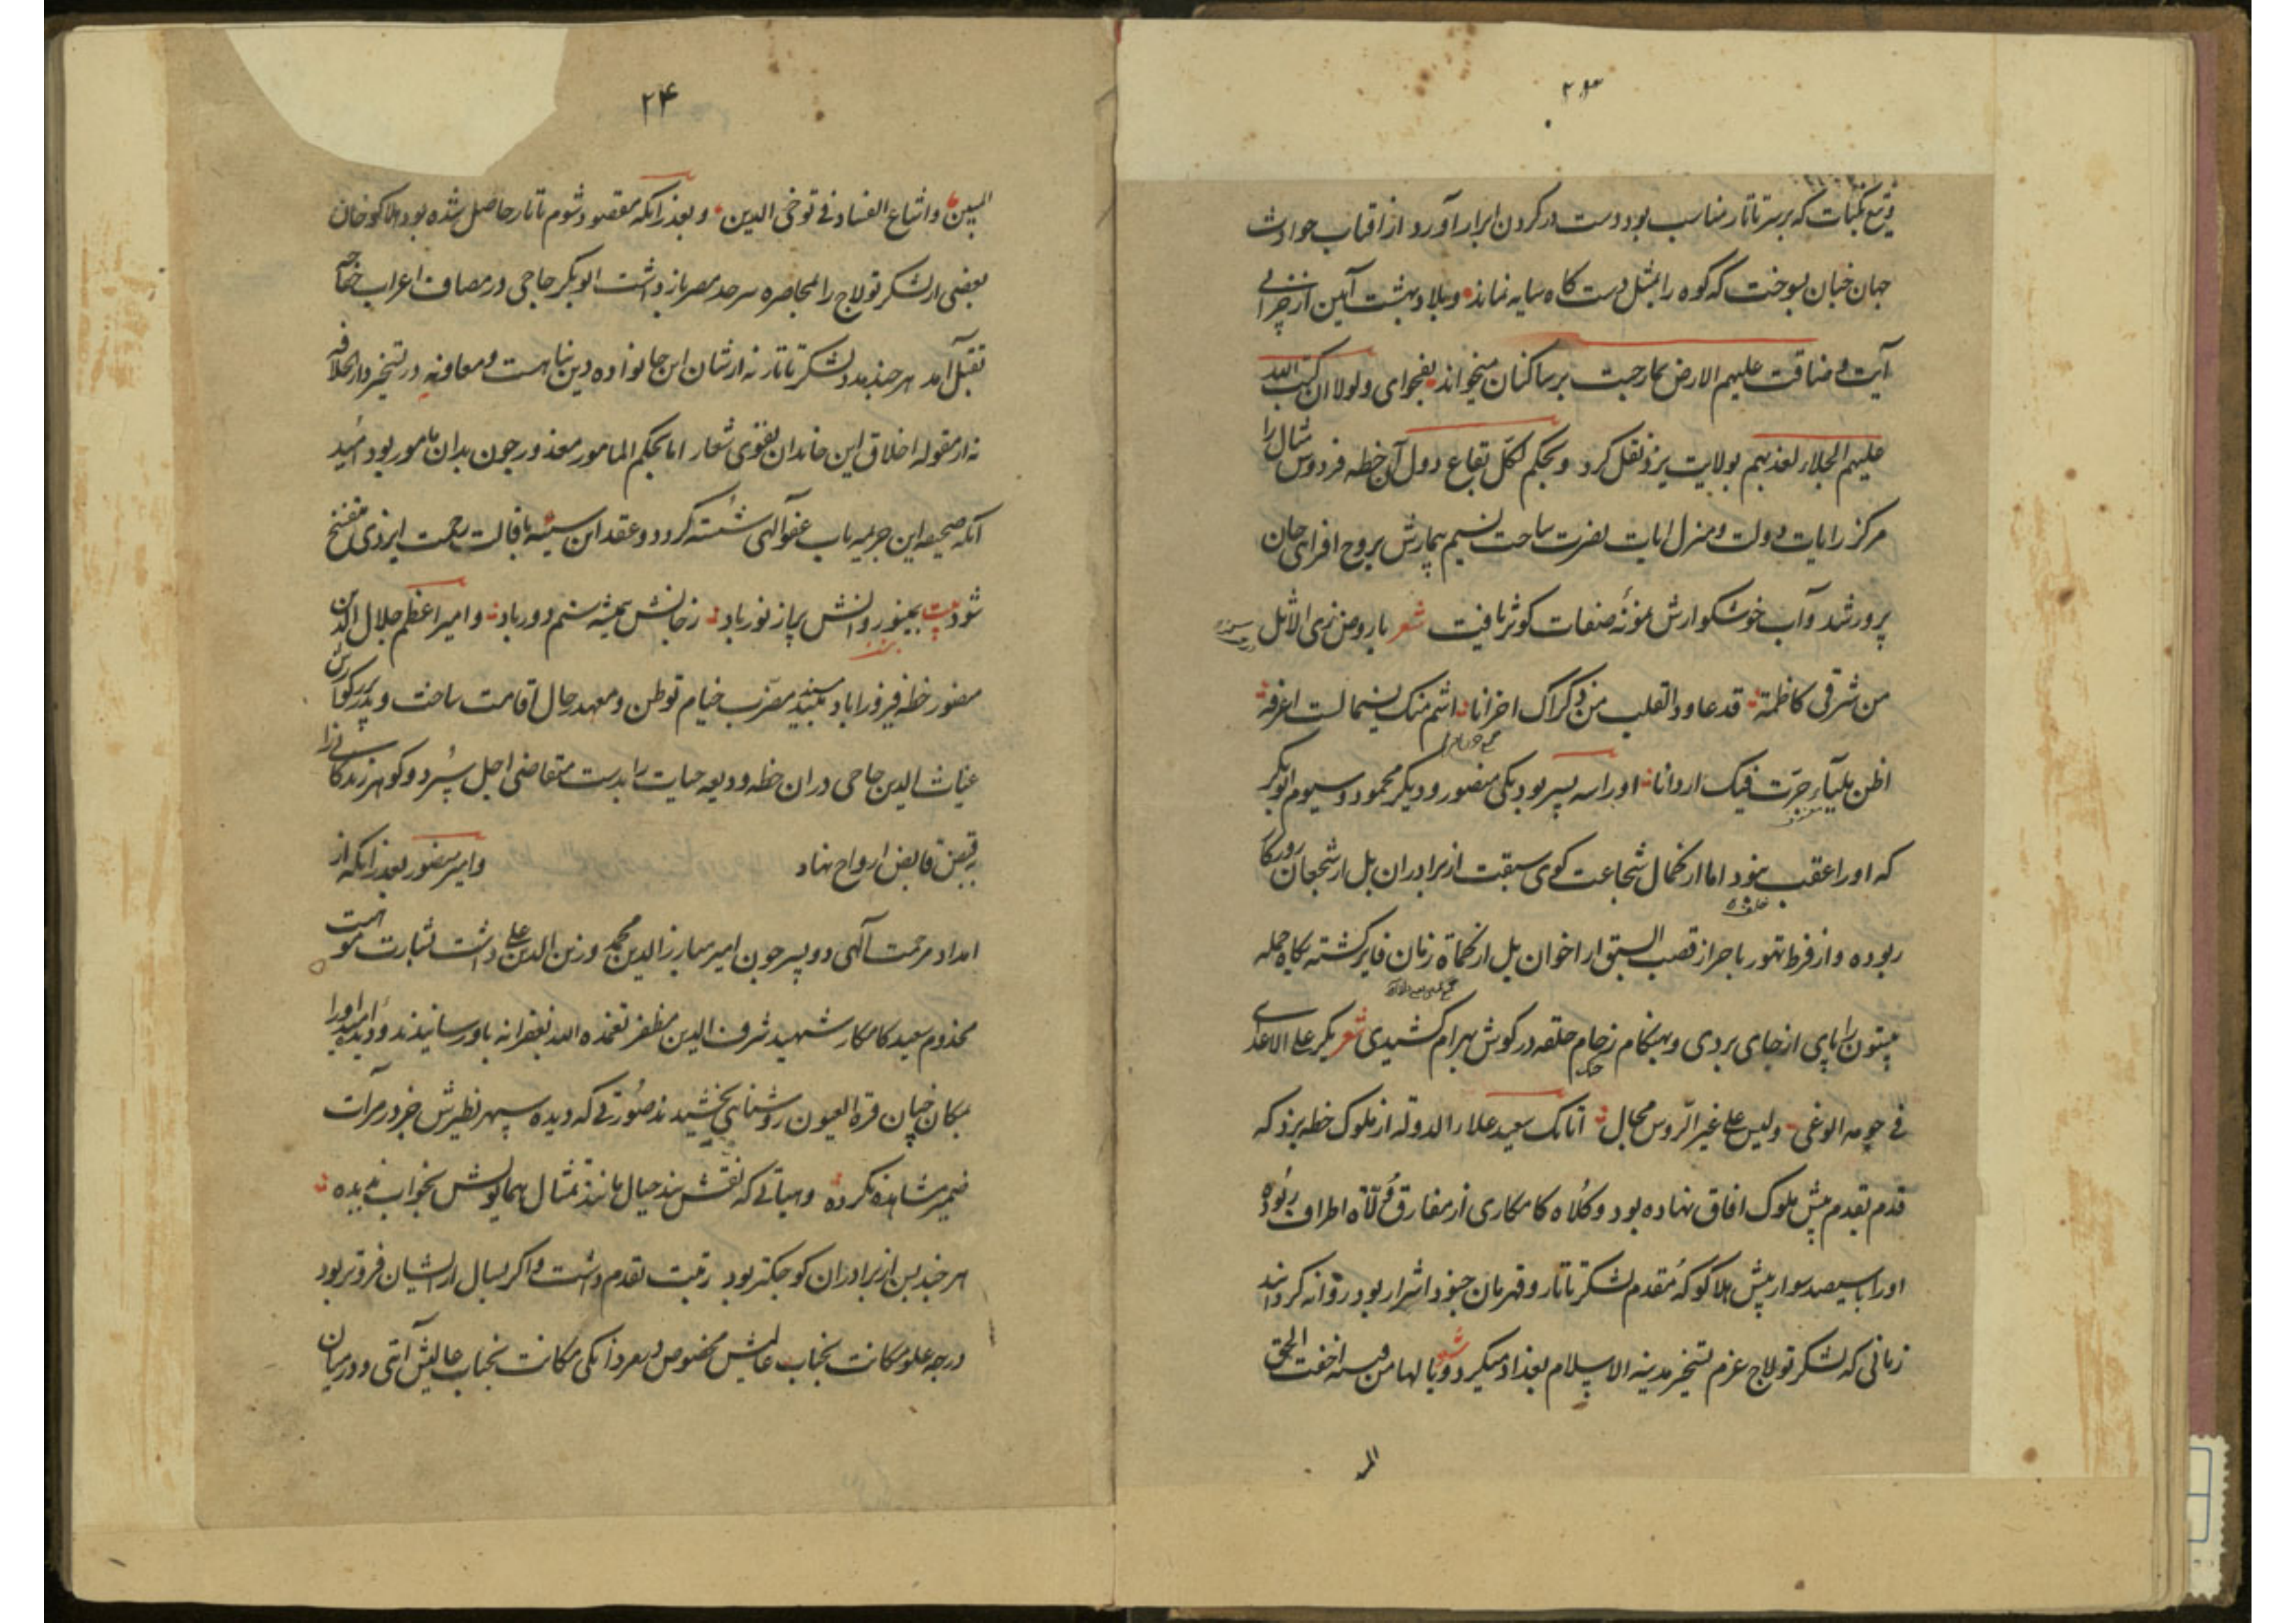 ۲۳
که بر سر تاتار مناسب بود دست در کردن ابرار آورد از افتاب حوادث
جهان جنان بسوخت که کوه را بمثل دست کاه سایه نماند و بلاد بهشت آیین از
آیت و ضاقت علیهم الارض بمارحبت بر ساکنان میخواند بفحوای ولولا ان کتب الله
علیهم الجلاء لعذبهم بولایت یزد نقل کرد و بحکم لکل بقاع دول آن خطه فردوس مثال را
مرکز رایات دولت و منزل ایات نصرت ساخت نسیم بیمارش بروح افزای جان
پرور شد و آب خوشکوارش نمونه صفات کوثر یافت شعر یا روض ذی الاثل
من شرقی کاظمة قد عاود القلب من ذکراک احزانا اشم منک نسیما لست اعرفه
اظن لمیآء جرت فیک اردانا او را سه پسر بود یکی منصور و دیکر محمود و سیوم ابوبکر
که او را عقب نبود اما از کمال شجاعت کوی سبقت از برادران بل از شجعان روزکار
ربوده و از فرط تهور باحراز قصب السبق از اخوان بل از کماة زمان فایز کشته بکاه حمله
بیستون را پای از جای بردی و بهنکام زخام حلقه در کوش بهرام کشیدی شعر یکر علی الاعدای
فی حومه الوغی ولیس علی غیر الروس مجال اتابک سعید علاء الدوله از ملوک خطه یزد که
قدم تقدم پیش ملوک افاق نهاده بود و کلاه کامکاری از مفارق ولاة اطراف ربوده
او را با سیصد سوار پیش هلاکو که مقدم لشکر تاتار و قهرمان جنود اشرار بود روانه کردانید
زمانی که لشکر تولاج عزم تسخیر مدینه الاسلام بغداد میکرد شعر و یا لها من فتنه اخفت الحق
۲۴
المبین و اشاع الفساد فی نواحی الدین و بعد زانکه مقصود شوم تاتار حاصل شده بود هلاکو خان
بعضی از لشکر تولاج را بمحاصره سرحد مصر باز داشت ابوبکر حاجی در مصاف اعراب خفاجه
بقتل آمد هر چند مدد لشکر تاتار نه از شان این خانواده دین پناهست و معاونه در تسخیر دار الخلافه
نه از مقوله اخلاق این خاندان تقوی شعار اما بحکم المامور معذور جون بدان مامور بود امید
آنکه صحیفه این جریمه باب عفو الهی شسته کردد و عقد این سیئه باقالت رحمت ایزدی منفسخ
شود بیت بمینو روانش پر از نور باد زجانش همیشه ستم دور باد و امیر اعظم جلال الدین
منصور خطه فیروزاباد میبد مضرب خیام توطن و معهد رحال اقامت ساخت و پدر بزرکوارش
غیاث الدین حاجی دران خطه ودیعه حیات را بدست متقاضی اجل سپرد و کوهر زندکانی را
بقبض قابض ارواح نهاد و امیر منصور بعد زانکه از
امداد مرحمت آلهی دو پسر جون امیر مبارز الدین محمد و زین الدین علی داشت بشارت موهبت
مخدوم سعید کامکار شهید شرف الدین مظفر تغمده الله بغفرانه باو رسانیدند و دیده امید او را
بمکان جنان قرة العیون روشنایی بخشیدند صورتی که دیده سپهر نظیرش جز در مرآت
ضمیر مشاهده نکرده و هیاتی که نقش بند خیال مانند تمثال همایونش بخواب ندیده
هر جند بسن از برادران کوجکتر بود رتبت تقدم داشت و اکر بسال از ایشان فروتر بود
درجه علو مکانت بجناب عالیش مخصوص و بعد زانکی مکانت بجناب عالیش آتی و در میان